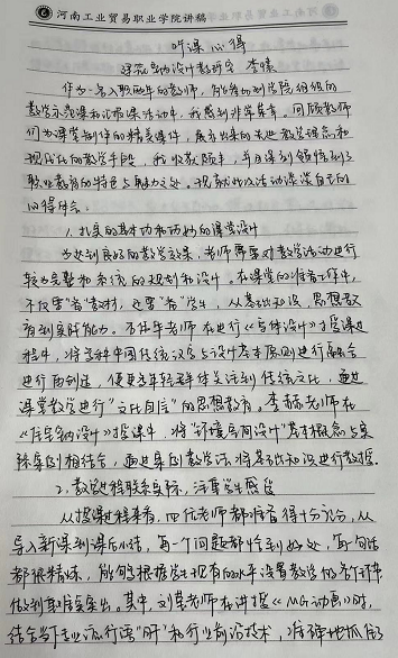 河南工业贸易职业学院讲稿
听课心得
建筑室内设计教研室 李
作为一名入职两年的教师，能够参加到学院组织的
教学示范课和汇报课活动中，我感到非常荣幸。回顾教师
们为课堂制作的精美课件，展示出来的先进教学理念和
现代化的教学手段，我收获颇丰，并且深刻领悟到了
职业教育的特色与魅力之处。现就此次活动谈谈自己的
心得体会。
1. 扎实的基本功和巧妙的课堂设计
为达到良好的教学效果，老师需要对教学活动进行
较为完整和系统的规划和设计。在课堂的准备工作中，
不仅要"备"教材，还要"备"学生，从基础知识、思想教
育到实践能力。不
老师在进行《字体设计》授课过
程中，将学科中国传统汉字与设计基本原则进行融合
进行再创造，使更多年轻群体关注到传统文化，通过
课堂教学进行"文化自信"的思想教育。李赫老师在
《居室室内设计》授课中，将"环境空间设计"基本概念与实
际案例相结合，通过案例教学法将基础知识进行教授。
2. 教学过程联系实际，注重学生感受
从授课过程来看，四位老师都准备得十分充分，从
导入新课到课后小结，每一个问题都恰到好处，每句话
都很精炼，能够根据学生现有的水平设置教学的各个环节，
做到重难点突出。其中，刘慧老师在讲授《MG动画》时，
结合当下专业流行语"肝"和行业前沿技术，准确地抓住